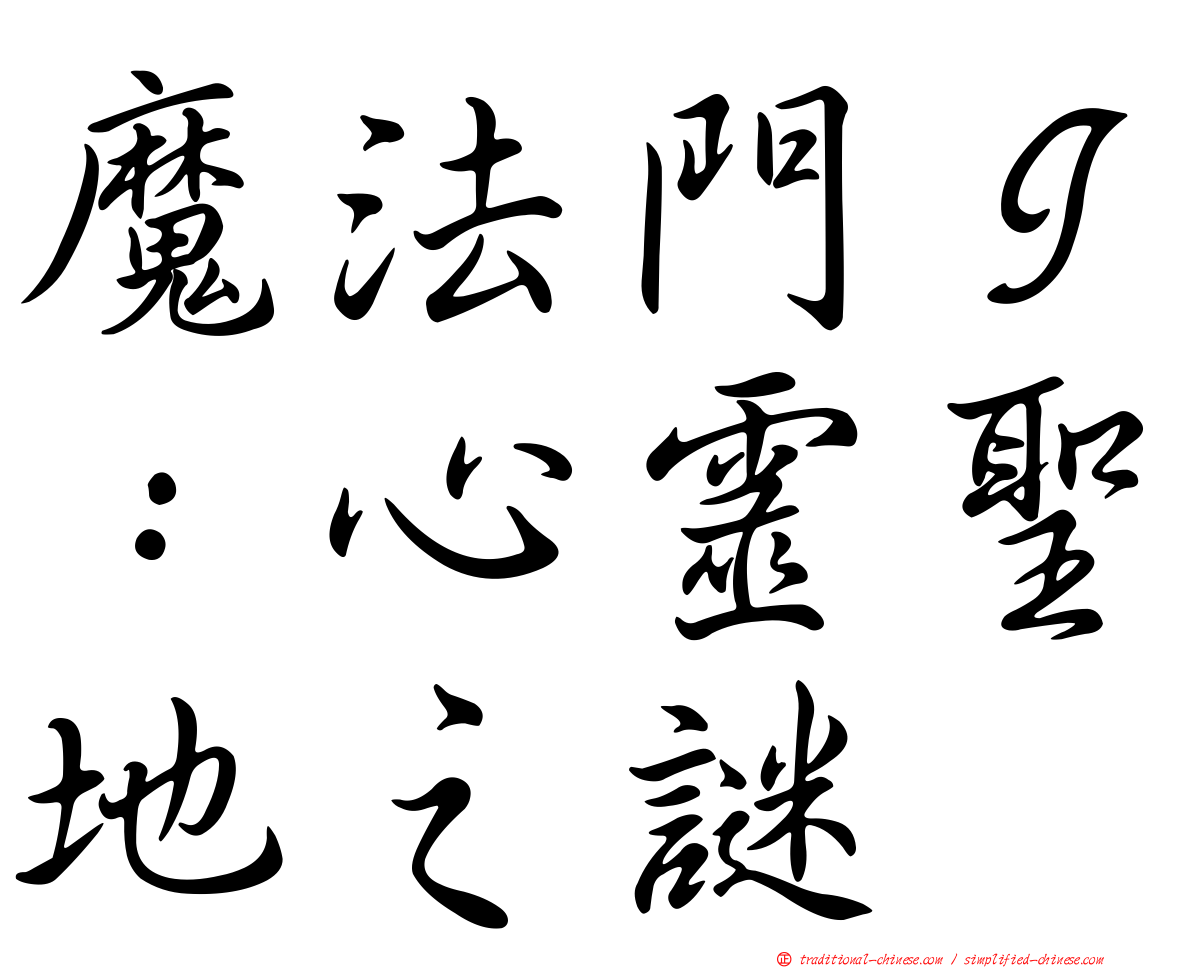 魔法門9
：心靈聖
地之謎
㊣ traditional-chinese.com / simplified-chinese.com